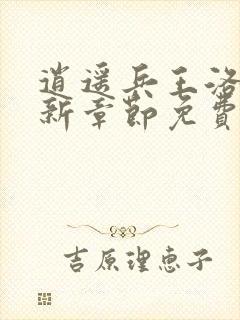 逍遥兵王洛
新章節免費
吉原理恵子